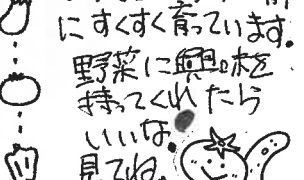 にすくすく育っています。
野菜に興味を
持ってくれたら
いいな。
見てね。